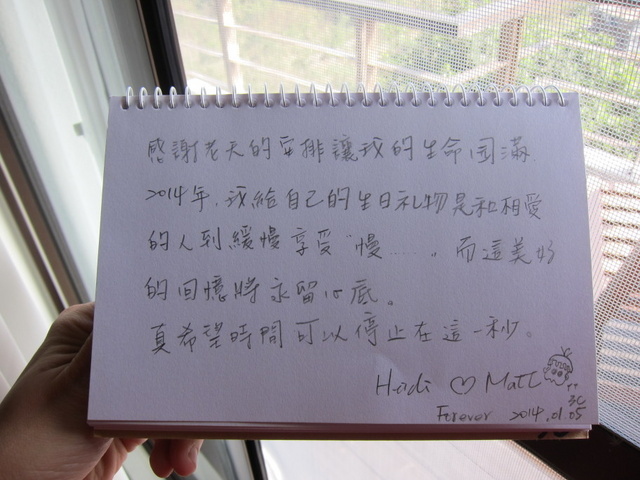 感謝老天的安排讓我的生命圓滿
2014年,我給自己的生日礼物是和相愛
的人到緩慢享受"慢……。而這美好
的回憶將永留心底。
真希望時間可以停止在這一秒。
Heidi ♡ Matt
3C
Forever 2014.01.05